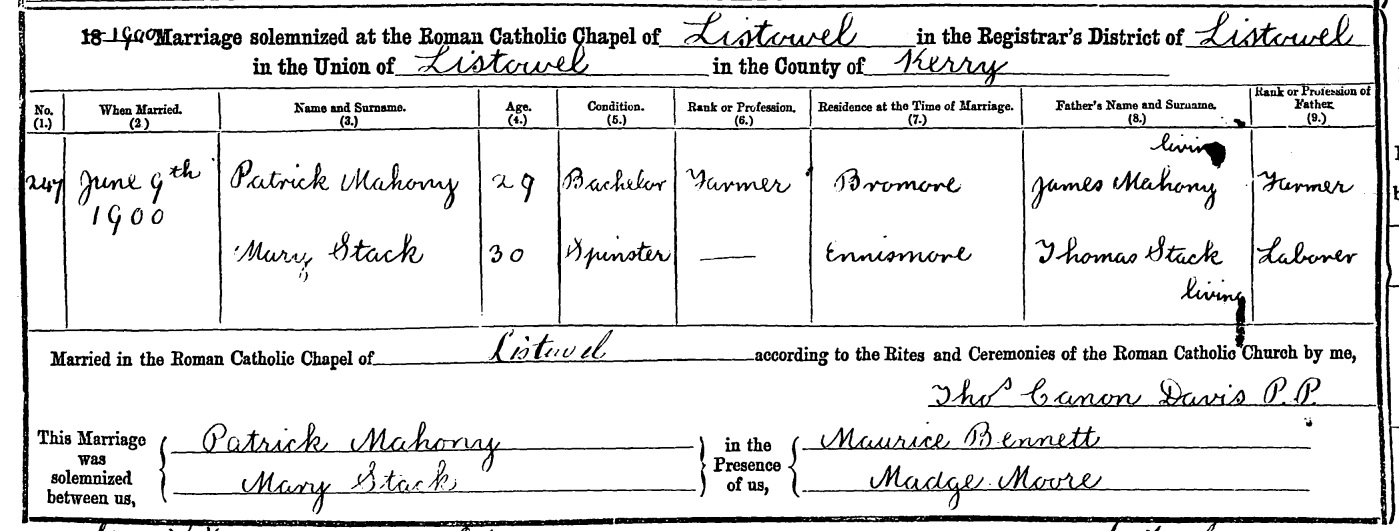 18 1900 Marriage solemnized at the Roman Catholic Chapel of Listowel in the Registrar's District of Listowel
in the Union of Listowel in the County of Kerry
No. (1.) When Married. (2) Name and Surname. (3.) Age. (4.) Condition. (5.) Rank or Profession. (6.) Residence at the Time of Marriage. (7.) Father's Name and Surname. (8.) Rank or Profession of Father (9.)
living
247 June 9th Patrick Mahony 29 Bachelor Farmer Bromore James Mahony Farmer
1900
Mary Stack 30 Spinster — Ennismore Thomas Stack Laborer
living
Married in the Roman Catholic Chapel of Listowel according to the Rites and Ceremonies of the Roman Catholic Church by me,
Thos Canon Davis P.P.
This Marriage was solemnized between us, Patrick Mahony in the Presence of us, Maurice Bennett
Mary Stack Madge Moore